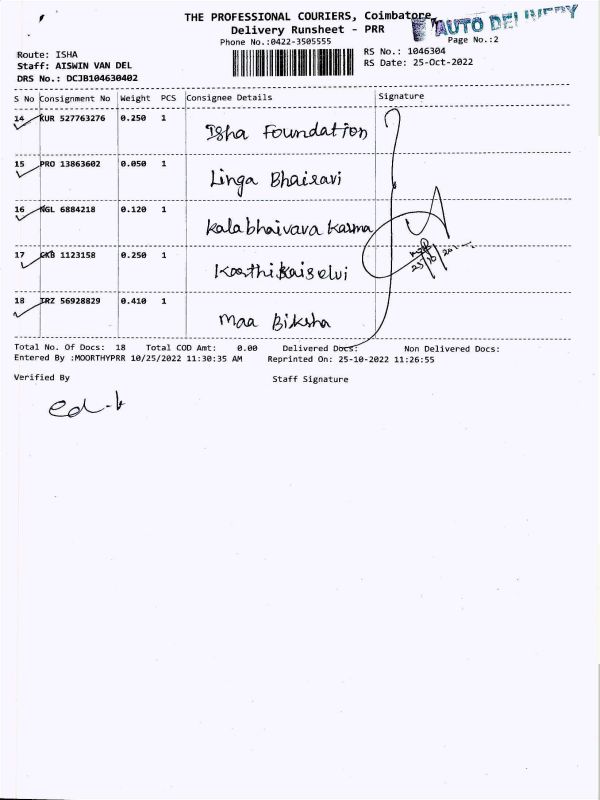 THE PROFESSIONAL COURIERS, Coimbatore
AUTO DELIVERY
Delivery Runsheet - PRR
Phone No.:0422-3505555
Page No.:2
Route: ISHA
RS No.: 1046304
Staff: AISWIN VAN DEL
RS Date: 25-Oct-2022
DRS No.: DCJB104630402
S No Consignment No Weight PCS Consignee Details Signature
14 KUR 527763276 0.250 1 Isha Foundation
15 PRO 13863602 0.050 1 Linga Bhairavi
16 NGL 6884218 0.120 1 Kalabhaivava Karma
17 CKB 1123158 0.250 1 Karthikaiselvi
18 IRZ 56928829 0.410 1 Maa Biksha
Total No. Of Docs: 18 Total COD Amt: 0.00 Delivered Docs: Non Delivered Docs:
Entered By :MOORTHYPRR 10/25/2022 11:30:35 AM Reprinted On: 25-10-2022 11:26:55
Verified By Staff Signature